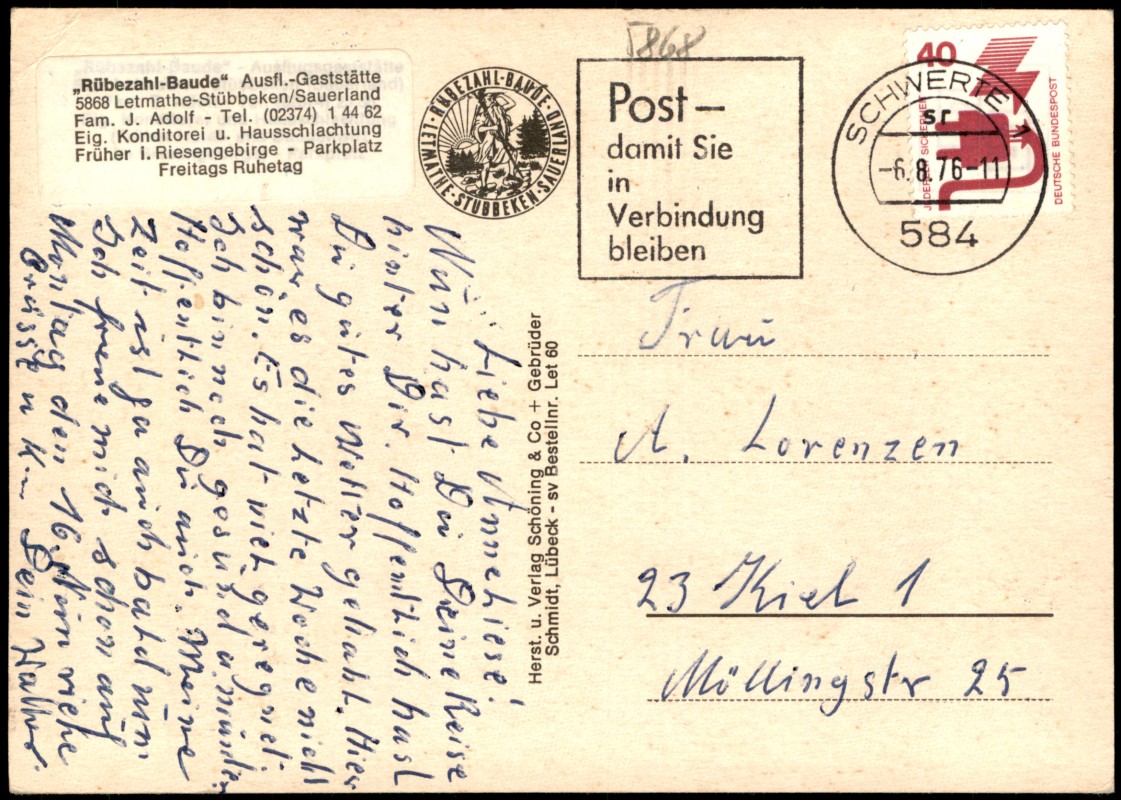 „Rübezahl-Baude“ Ausfl.-Gaststätte
5868 Letmathe-Stübbeken/Sauerland
Fam. J. Adolf - Tel. (02374) 1 44 62
Eig. Konditorei u. Hausschlachtung
Früher i. Riesengebirge - Parkplatz
Freitags Ruhetag
RÜBEZAHL-BAUDE · LETMATHE-STÜBBEKEN-SAUERLAND
5868
Post –
damit Sie
in
Verbindung
bleiben
SCHWERTE 1
sr
-6.8.76-11
584
40
JEDERZEIT SICHERHEIT
DEUTSCHE BUNDESPOST
Liebe Anneliese!
Nun hast Du Deine Reise
hinter Dir. Hoffentlich hast
Du gutes Wetter gehabt. Hier
war es die letzte Woche nicht
schön. Es hat viel geregnet
Ich bin noch gesund u. munter
Hoffentlich Du auch. Meine
Zeit ist ja auch bald um
Ich freue mich schon auf
Montag den 16. Nun viele
Grüsse u. K– Dein Walter.
Herst. u. Verlag Schöning & Co + Gebrüder
Schmidt, Lübeck - sv Bestellnr. Let 60
Frau
A. Lorenzen
23 Kiel 1
Möllingstr 25